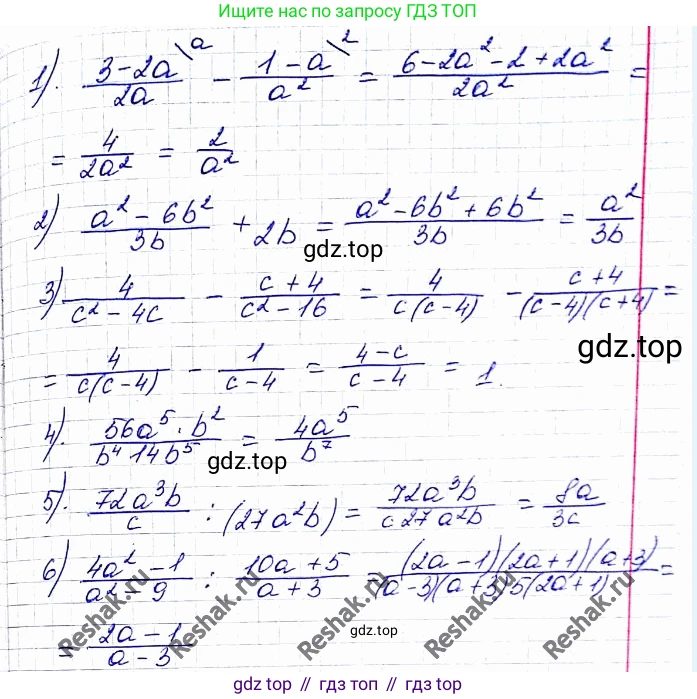 Ищите нас по запросу ГДЗ ТОП
1). (3-2a^\a)/(2a) - (1-a^\2)/(a²) = (6-2a²-2+2a²)/(2a²) =
= 4/(2a²) = 2/(a²)
2) (a²-6b²)/(3b) + 2b = (a²-6b²+6b²)/(3b) = a²/(3b)
gdz.top
3) 4/(c²-4c) - (c+4)/(c²-16) = 4/(c(c-4)) - (c+4)/((c-4)(c+4)) =
gdz.top
= 4/(c(c-4)) - 1/(c-4) = (4-c)/(c-4) = 1.
4). (56a⁵·b²)/(b⁴ 14b⁵) = (4a⁵)/(b⁷)
gdz.top
5). (72a³b)/c : (27a²b) = (72a³b)/(c 27a²b) = (8a)/(3c)
6) (4a²-1)/(a²-9) : (10a+5)/(a+3) = ((2a-1)(2a+1)(a+3))/((a-3)(a+3)·5(2a+1)) =
= (2a-1)/(a-3)
Reshak.ru
Reshak.ru
Reshak.ru
Reshak.ru
gdz.top
gdz.top // gdz.top // gdz.top